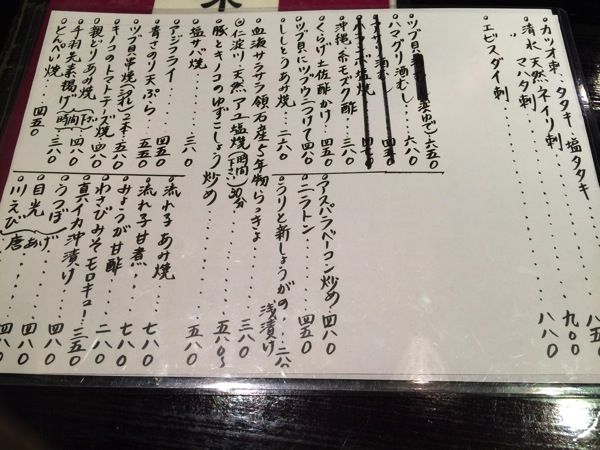 カツオ刺、タタキ 塩タタキ
八五〇
清水 天然 ネイリ刺 九〇〇
〃 マハタ刺 八八〇
エビスダイ刺
ツブ貝 ゆで) 六五〇
ハマグリ酒むし 六八〇
沖縄・糸モズク酢 三八〇
くらげ土佐酢かけ 四五〇
ツブ貝にツブウニつけて 四八〇
ししとうあみ焼 二六〇
血液サラサラ 領石産5年物らっきょ
仁淀川、天然アユ塩焼(時間下さい)30分
豚とキノコのゆずこしょう炒め
塩サバ焼 三八〇
アジフライ 四五〇
青さのり天ぷら 五五〇
ツブ貝串焼 2本 五八〇
キノコのトマトチーズ焼 四八〇
親どりあみ焼
千羽先素揚げ(時間下さい) 三八〇
とんぺい焼 四五〇
アスパラベーコン炒め 四八〇
ニラトン 四五〇
うりと新しょうがの、浅漬け 二八〇
三八〇
五八〇〜
五八〇
流れ子 あみ焼
流れ子 甘煮 七八〇
みょうが甘酢
わさびみそモロキュー 三五〇
真イカ沖漬け
うつぼ 四八〇
目光 唐あげ 四八〇
川えび 四八〇